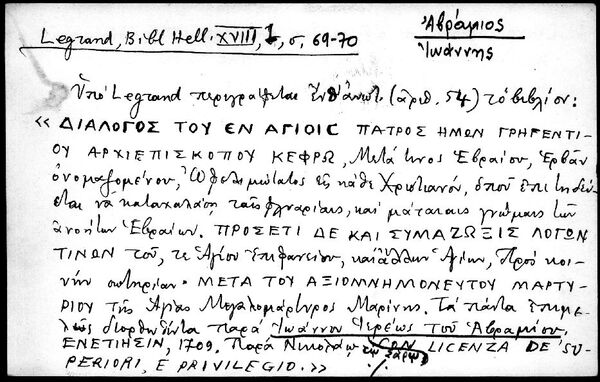 Legrand, Bibl Hell. XVIII, 1, σ. 69-70
Ἀβράμιος
Ἰωάννης
Ὑπὸ Legrand περιγράφεται (ἀριθ. 54) τὸ βιβλίον:
« ΔΙΑΛΟΓΟΣ ΤΟΥ ΕΝ ΑΓΙΟΙC ΠΑΤΡΟΣ ΗΜΩΝ ΓΡΗΓΕΝΤΙ-
ΟΥ ΑΡΧΙΕΠΙΣΚΟΠΟΥ ΚΕΦΡΩ, Μετά τινος Ἑβραίου, Ἑρβὰν
ὀνομαζομένου, Ὠφελιμώτατος εἰς κάθε Χριστιανόν, ὁποῦ ἐπιτηδεύ-
εται νὰ καταχαλάσῃ ταῖς φλυαρίαις, καὶ μάταιαις γνώμαις τῶν
ἀνοήτων Ἑβραίων. ΠΡΟΣΕΤΙ ΔΕ ΚΑΙ ΣΥΜΑΖΩΞΙΣ ΛΟΓΩΝ
ΤΙΝΩΝ τοῦ, τε Ἁγίου Ἐπιφανείου, καὶ ἄλλων Ἁγίων, Πρὸς κοι-
νὴν σωτηρίαν. ΜΕΤΑ ΤΟΥ ΑΞΙΟΜΝΗΜΟΝΕΥΤΟΥ ΜΑΡΤΥ-
ΡΙΟΥ τῆς Ἁγίας Μεγαλομάρτυρος Μαρίνης. Τὰ πάντα ἐπιμε-
λῶς διορθωθέντα παρὰ Ἰωάννου Ἱερέως τοῦ Ἀβραμίου.
ΕΝΕΤΙΗΣΙΝ, 1709. Παρὰ Νικολάῳ τῷ Σάρῳ CON LICENZA DE' SU-
PERIORI, E PRIVILEGIO. »